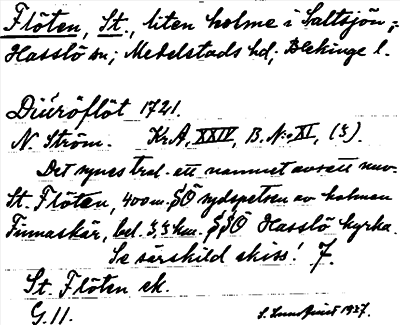 Flöten, St., liten holme i Saltsjön;
Hasslö sn; Medelstads hd; Blekinge l.
Diüröflöt 1721.
N. Ström. Kr.A, XXIV, B. N:o XI, (3).
Det synes tral. att namnet avsett nuv.
St. Flöten, 400 m. SÖ sydspetsen av holmen
Finnaskär, bel. 3,3 km. SSÖ Hasslö kyrka.
Se särskild skiss! 7.
St. Flöten ek.
G. 11. 1927.